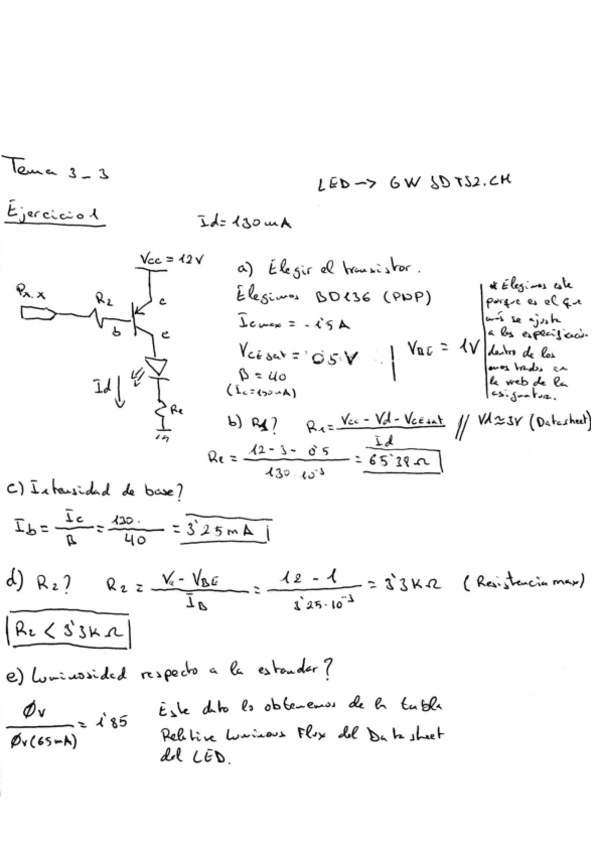 Tema 3_3
LED -> GW SDTS2.CM
Ejercicio 1
Id = 130mA
Vcc = 12V
Px.x
R2
b
e
c
Id
Re
a) Elegir el transistor.
Elegimos BD136 (PNP)
Icmax = -1'5A
VCEsat = 0'5V
VBE = 1V
B = 40
(Ic=130mA)
* Elegimos este
porque es el que
más se ajusta
a las especificación
dentro de los
mostrados en
la web de la
asignatura.
b) R1? R1 = Vcc - Vd - VCEsat / Id // Vd ≈ 3V (Datasheet)
Re = 12 - 3 - 0'5 / 130·10^-3 = 65'38 Ω
c) Intensidad de base?
Ib = Ic / B = 130· / 40 = 3'25mA
d) R2? R2 = Vcc - VBE / IB = 12 - 1 / 3'25·10^-3 = 3'3KΩ (Resistencia max)
R2 < 3'3KΩ
e) Luminosidad respecto a la estandar?
Øv / Øv(65mA) = 1'85
Este dato lo obtenemos de la tabla
Relative Luminous Flux del Datasheet
del LED.